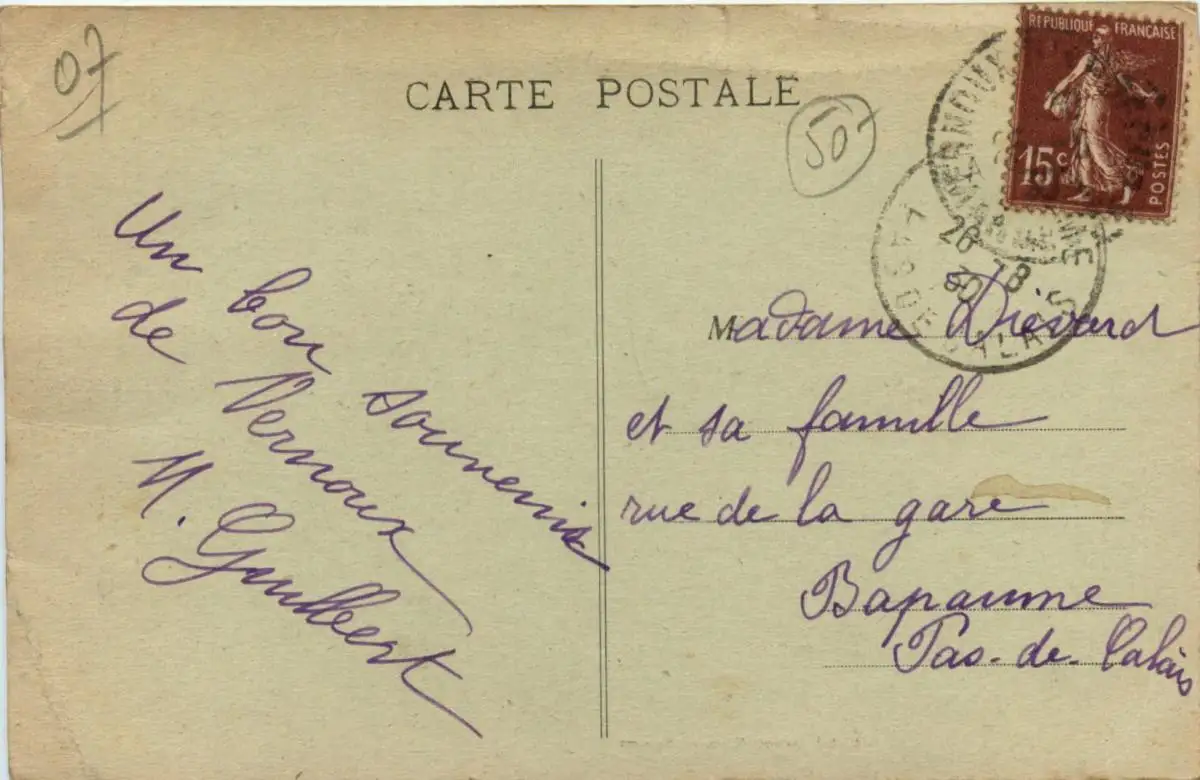 07
CARTE POSTALE
50
RÉPUBLIQUE FRANÇAISE
15c
POSTES
26 - 8
30
PAS DE CALAIS
Un bon souvenir
de Vernoux
M. Guilbert
Madame Diévard
et sa famille
rue de la gare
Bapaume
Pas-de-Calais